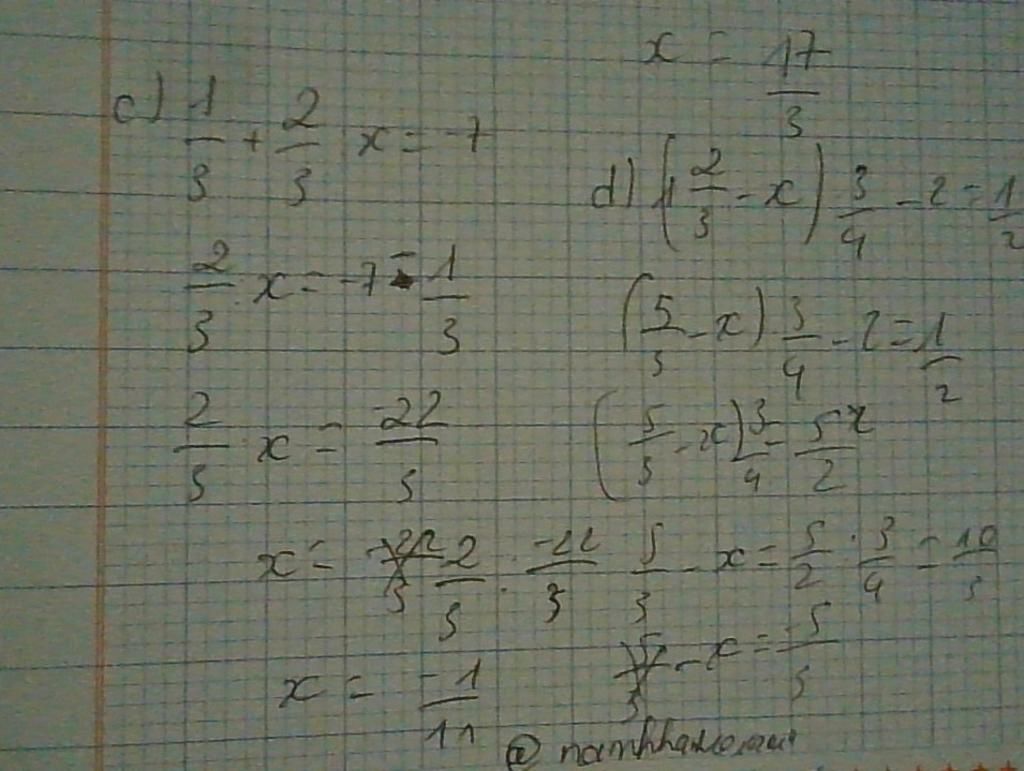 x = 17/3
c) 1/3 + 2/3 x = -7
2/3 . x = -7 - 1/3
2/3 . x = -22/3
x = 2/3 . -22/3
x = -1/11
d) (1 2/3 - x) 3/4 - 2 = 1/2
(5/3 - x) 3/4 - 2 = 1/2
(5/3 - x) 3/4 = 5/2
5/3 - x = 5/2 . 3/4 = 10/3
- x = 5/3